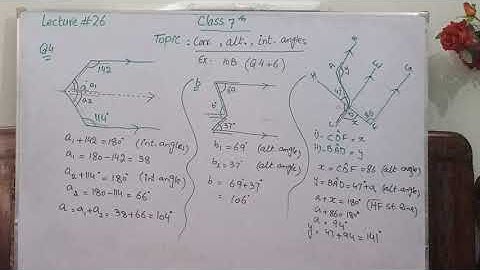 Lecture #26
Class 7th
Topic: Corr, alt., int. angles
Ex: 10B (Q4+6)
Q4
142
a
a1
a2
114°
a1 + 142 = 180° (int. angles)
a1 = 180 - 142 = 38
a2 + 114° = 180° (int angles)
a2 = 180 - 114 = 66°
a = a1 + a2 = 38 + 66 = 104°
b
69
37°
b1 = 69° (alt angles)
b2 = 37° (alt angles)
b = 69 + 37°
= 106°
i) CD̂F = x
ii) BÂD = y
x = CD̂F = 86 (alt angles)
y = BÂD = 47 + a (alt. angles)
a + x = 180° (HF st. line)
a + 86 = 180°
a = 94°
y = 47 + 94 = 141°